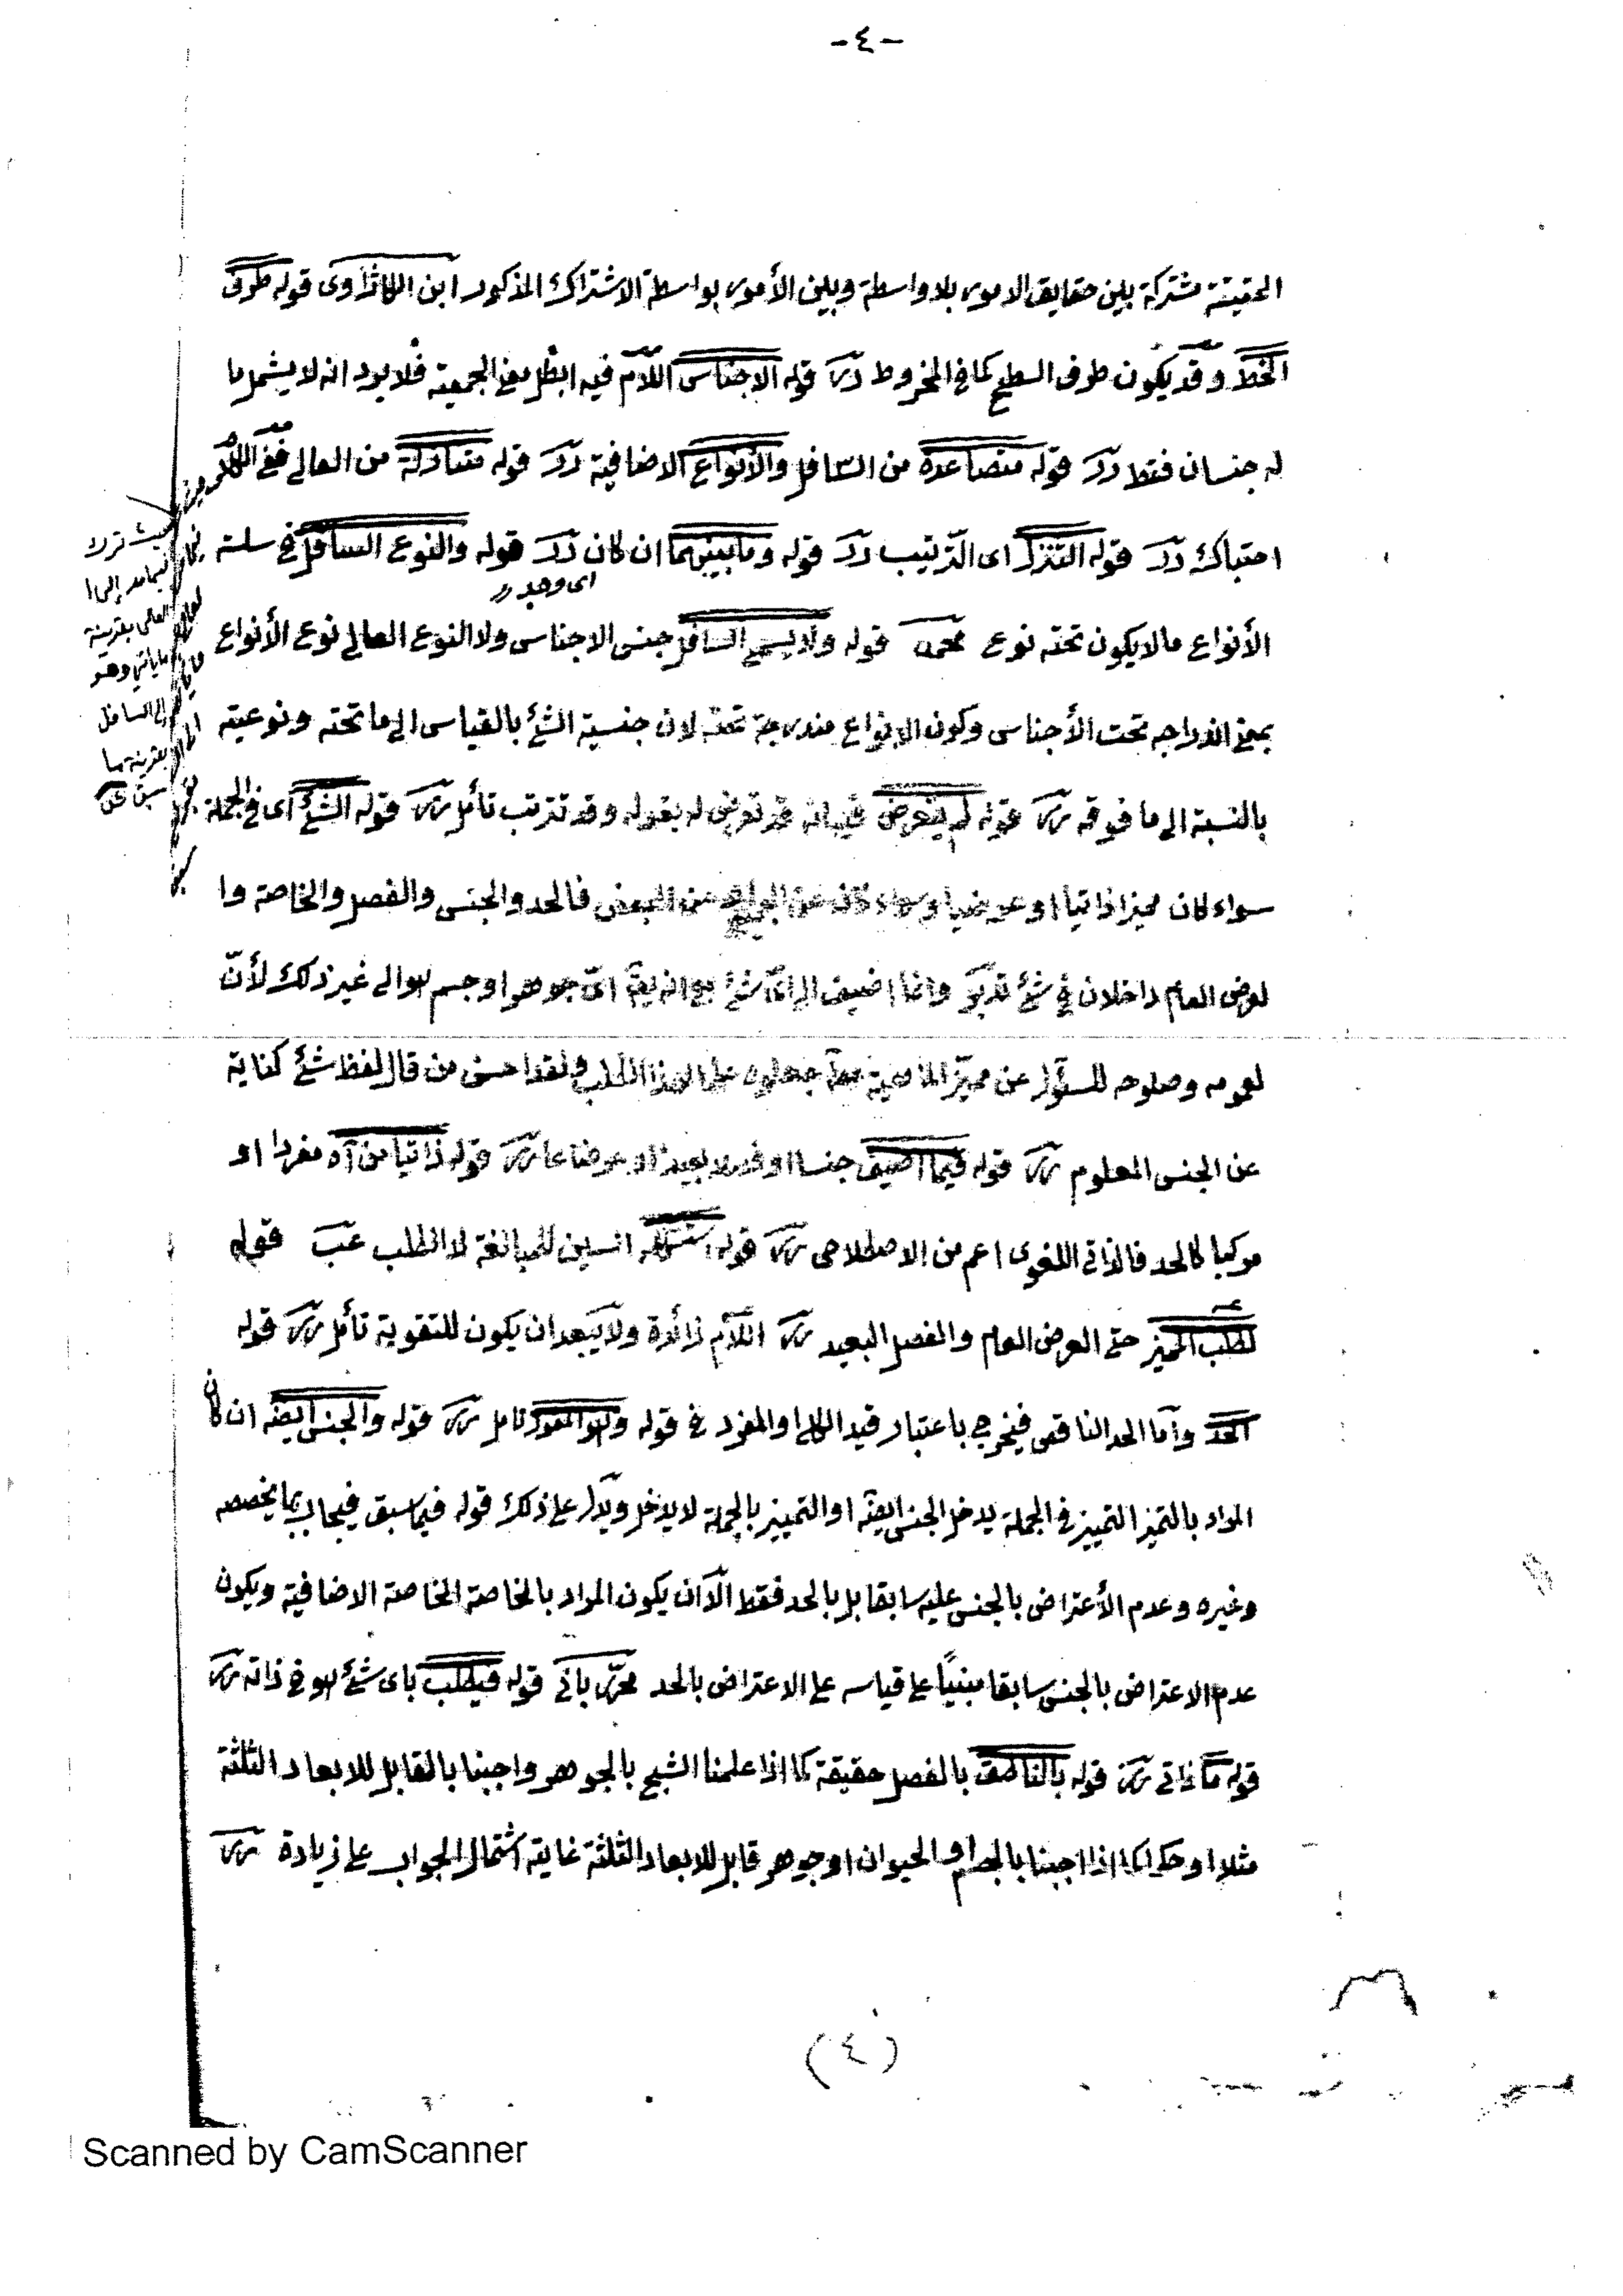 -٤-
الحقيقة مشتركة بين حقايق الامور بلا واسطة وبين الأمور بواسطة الاشتراك المذكور ابن قوله طرف
الخط وقد يكون طرف السطح كما في المخروط قوله الاجناس اللام فيه ابطل معنى الجمعية فلا يرد انه لا يشمل ما
له جنسان فقط قوله متصاعدة من السافل والأنواع الاضافية قوله متنازلة من العالي ففي
احتباك قوله التنزل اى الترتيب قوله وما بينهما ان كان قوله والنوع السافل في سلسة
اى وجد
الأنواع مالا يكون تحته نوع قوله ولا يسمى السافل جنس الاجناس ولا النوع العالي نوع الأنواع
بمعنى اندراجه تحت الأجناس وكون الانواع مندرجة تحته لان جنسية الشئ بالقياس الى ما تحته ونوعيته
بالنسبة الى ما فوقه قوله لم يتعرض فيه انه قد تعرض له بقوله وقد تترتب تأمل قوله الشئ اى في الجملة
سواء كان مميزا ذاتيا او عرضيا وسواء كان عن الجميع او عن البعض فالحد والجنس والفصل والخاصة وا
لعرض العام داخلان في شئ وانما اضيف الى اىّ شئ مع انه اىّ جوهر او جسم هو الى غير ذلك لأنّ
لعمومه وصلوحه للسؤال عن مميّز الماهية جعلوه علما لهذا المطلب ولقد احسن من قال لفظ شئ كناية
عن الجنس المعلوم قوله فيما اضيف جنسا او فصلا بعيدا او عرضا عاما قوله ذاتيا من آه مفردا او
مركبا كالحد فالذاتي اللغوى اعم من الاصطلاحى قوله السين للمبالغة لا الطلب عب قوله
لطلب المميز حتى العرض العام والفصل البعيد اللام زائدة ولا يبعد ان يكون للتقوية تأمل قوله
الحد وأما الحد الناقص فيخرج باعتبار قيد الكلى والمفرد في قوله وهو المقول تأمل قوله والجنس ايضا ان كان
المراد بالتميز التمييز في الجملة يدخل الجنس ايضا او التمييز بالجملة لا يدخل ويدل على ذلك قوله فيما سبق فيجاب بما يخصصه
وغيره وعدم الأعتراض بالجنس عليه سابقا بل بالحد فقط الّا ان يكون المراد بالخاصة الخاصة الاضافية ويكون
عدم الاعتراض بالجنس سابقا مبنيًا على قياسه على الاعتراض بالحد قوله فيطلب باى شئ هو في ذاته
قوله قوله بالناطق بالفصل حقيقة كما اذا علمنا الشبح بالجوهر واجبنا بالقابل للابعاد الثلثة
مثلا او حكما كما اذا اجبنا بالجسم او الحيوان او جوهر قابل للابعاد الثلثة غاية اشتمال الجواب على زيادة
العالى بقرينة
ما يأتي وهو
الى السافل
بقرينة ما
(٤)
Scanned by CamScanner